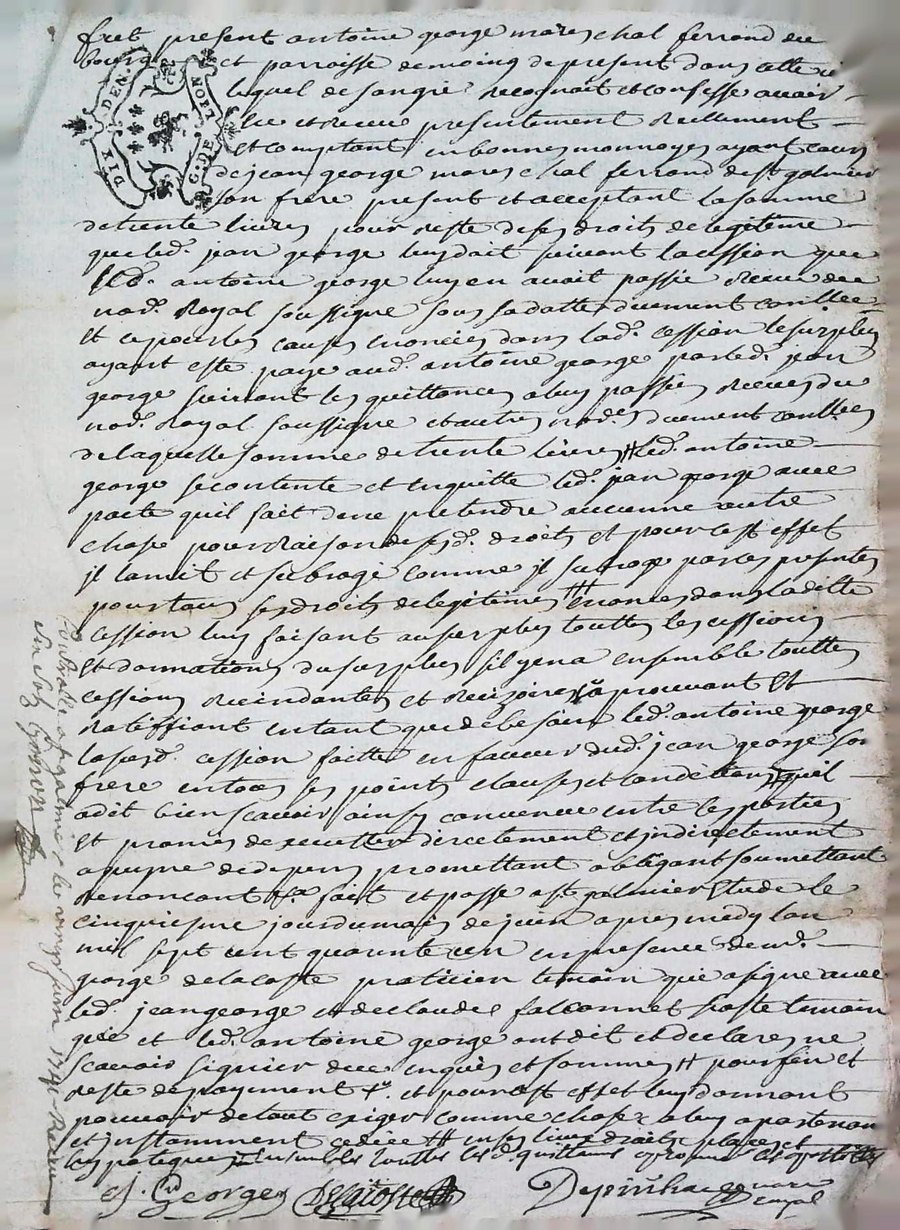 fut present antoine george mareschal ferrand du
bourg et parroisse de moing de present dans cette
lequel de son gré recognoit et confesse avoir
DIX DEN. G. DE NOPL
eu et receu presentement reellement
et comptant en bonnes monnoyes ayant cours
de jean george mareschal ferrand de st galmier
son frere present et acceptant la somme
de trente livres pour reste de ses droits de legitime
que led. jean george luy doit suivant la cession que
led. antoine george luy en avoit passée receu du
nore. Royal soussigné sous sa datte duement conllée
et ce pour les causes enoncées dans lad. cession le surplus
ayant esté payé aud. antoine george par led. jean
george suivant les quittances a luy passées receues du
nore. Royal soussigné et autres nores. duement conllées
de laquelle somme de trente livres led. antoine
george se contente et en quitte led. jean george avec
pacte qu'il fait de ne pretendre aucunne autre
chose pour raison de sesd. droits et pour cest effet
jl la mit et subrogé comme jl subroge par ces presentes
pour tous ses droits de legitimes enoncés dans la ditte
cession luy faisant au surplus touttes les cessions
et donnations du surplus s'il y en a ensemble touttes
cessions rescindantes et rescizoires aprouvant et
ratiffiant en tant que de besoin led. antoine george
la susd. cession faitte en faveur dud. jean george son
frere en tous ses points clauses et conditions qu'il
a dit bien scavoir ainsy convenue entre les parties
et promis d'executter directement et indirectement
a peyne de depens promettant obligeant soumettant
renoncant &a. fait et passé a st galmier etude le
cinquiesme jour du mois de juin apres midy l'an
mil sept cent quarente un en presence de mr.
george delacoste praticien temoin qui a signé avec
led. jean george et de claude falconnet hoste temoin
qui et led. antoine george ont dit et declaré ne
scavoir signier de ce enquis et sommés pour fin et
reste de payement et pour cest effet luy donnant
pouvoir de tout exiger comme chose a luy apartenant
et instamment cedée en ses lieux droits places et
hypoteques touttes lesd. quittances
J. George Delacoste notaire
royal
Controlle a st galmier le vingt juin 1741 Receu